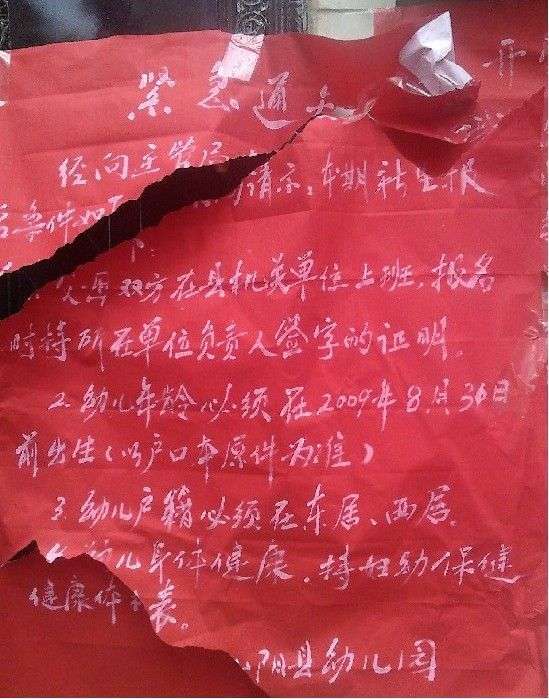 紧急通
开
经向主管局 请示:本期新生报
名条件如下
父母双方在县机关单位上班,报名
时持所在单位负责人签字的证明。
2.幼儿年龄必须在2009年8月30日
前出生(以户口本原件为准)
3.幼儿户籍必须在东居、西居。
幼儿身体健康,持妇幼保健
健康体 表。
阴县幼儿园